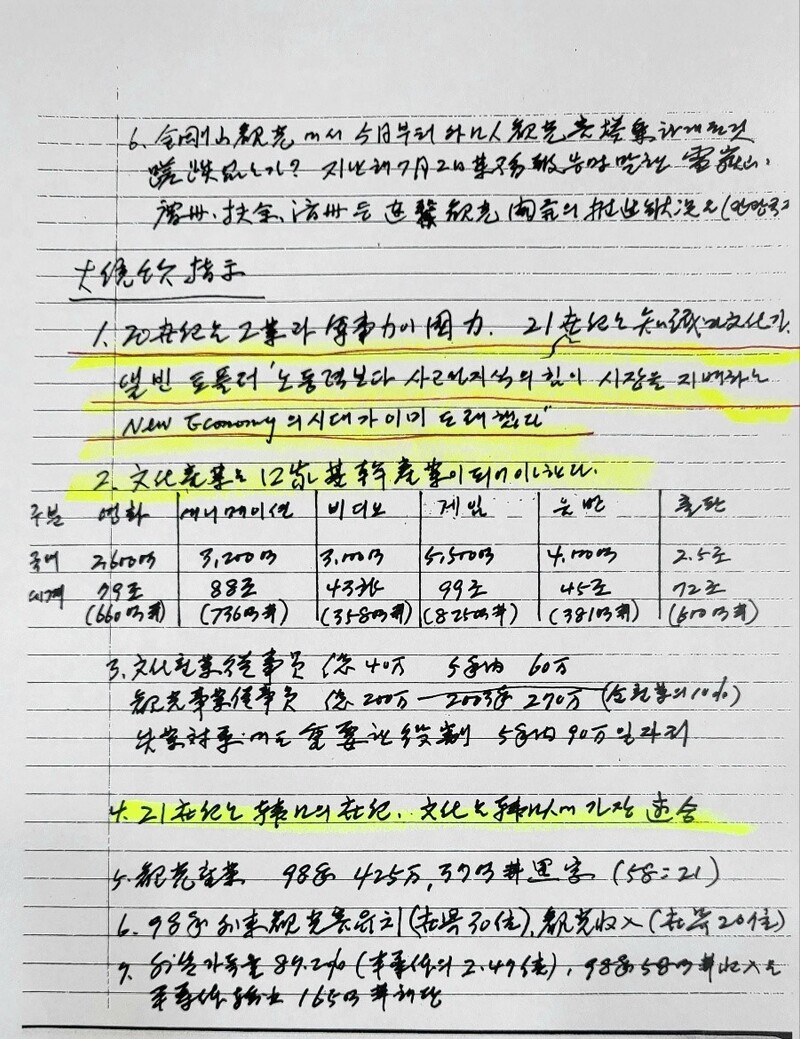 6. 金剛山 觀光에서 今日부터 外國人 觀光
지난해 7月2日 말한 雪嶽山,
慶州, 扶余, 濟州 等 連繫 觀光 開發의 推進 狀況은
大統領 指示
1. 20世紀는 工業과 軍事力이 國力. 21世紀는 知識과 文化가.
앨빈 토플러 '노동력보다 사고와 지식의 힘이 시장을 지배하는
New Economy의 시대가 이미 도래했다"
2. 文化産業은 12대 基幹産業이 되어야 한다.
구분 영화 애니메이션 비디오 게임 음반 출판
국내 2,600億 3,200億 3,100億 5,500億 4,100億 2.5조
세계 79조 88조 43조 99조 45조 72조
(660億弗) (736億弗) (358億弗) (825億弗) (381億弗) (600億弗)
3. 文化産業從事員 40万 5年內 60万
觀光事業從事員 200万 2003年 270万 (全 의 10%)
失業対策에도 重要한 役割 5年內 90万 일자리
4. 21世紀는 韓國의 世紀. 文化는 韓國人에 가장 適合
5. 觀光産業 98年 425万, 37億弗 黑字 (58:21)
6. 98年 外來觀光客유치 (世界 30位), 觀光收入 (世界 20位)
7. 外貨가득율 89.2% (半導体의 2.49倍), 98年 58億弗 收入은
半導体 165億弗 해당